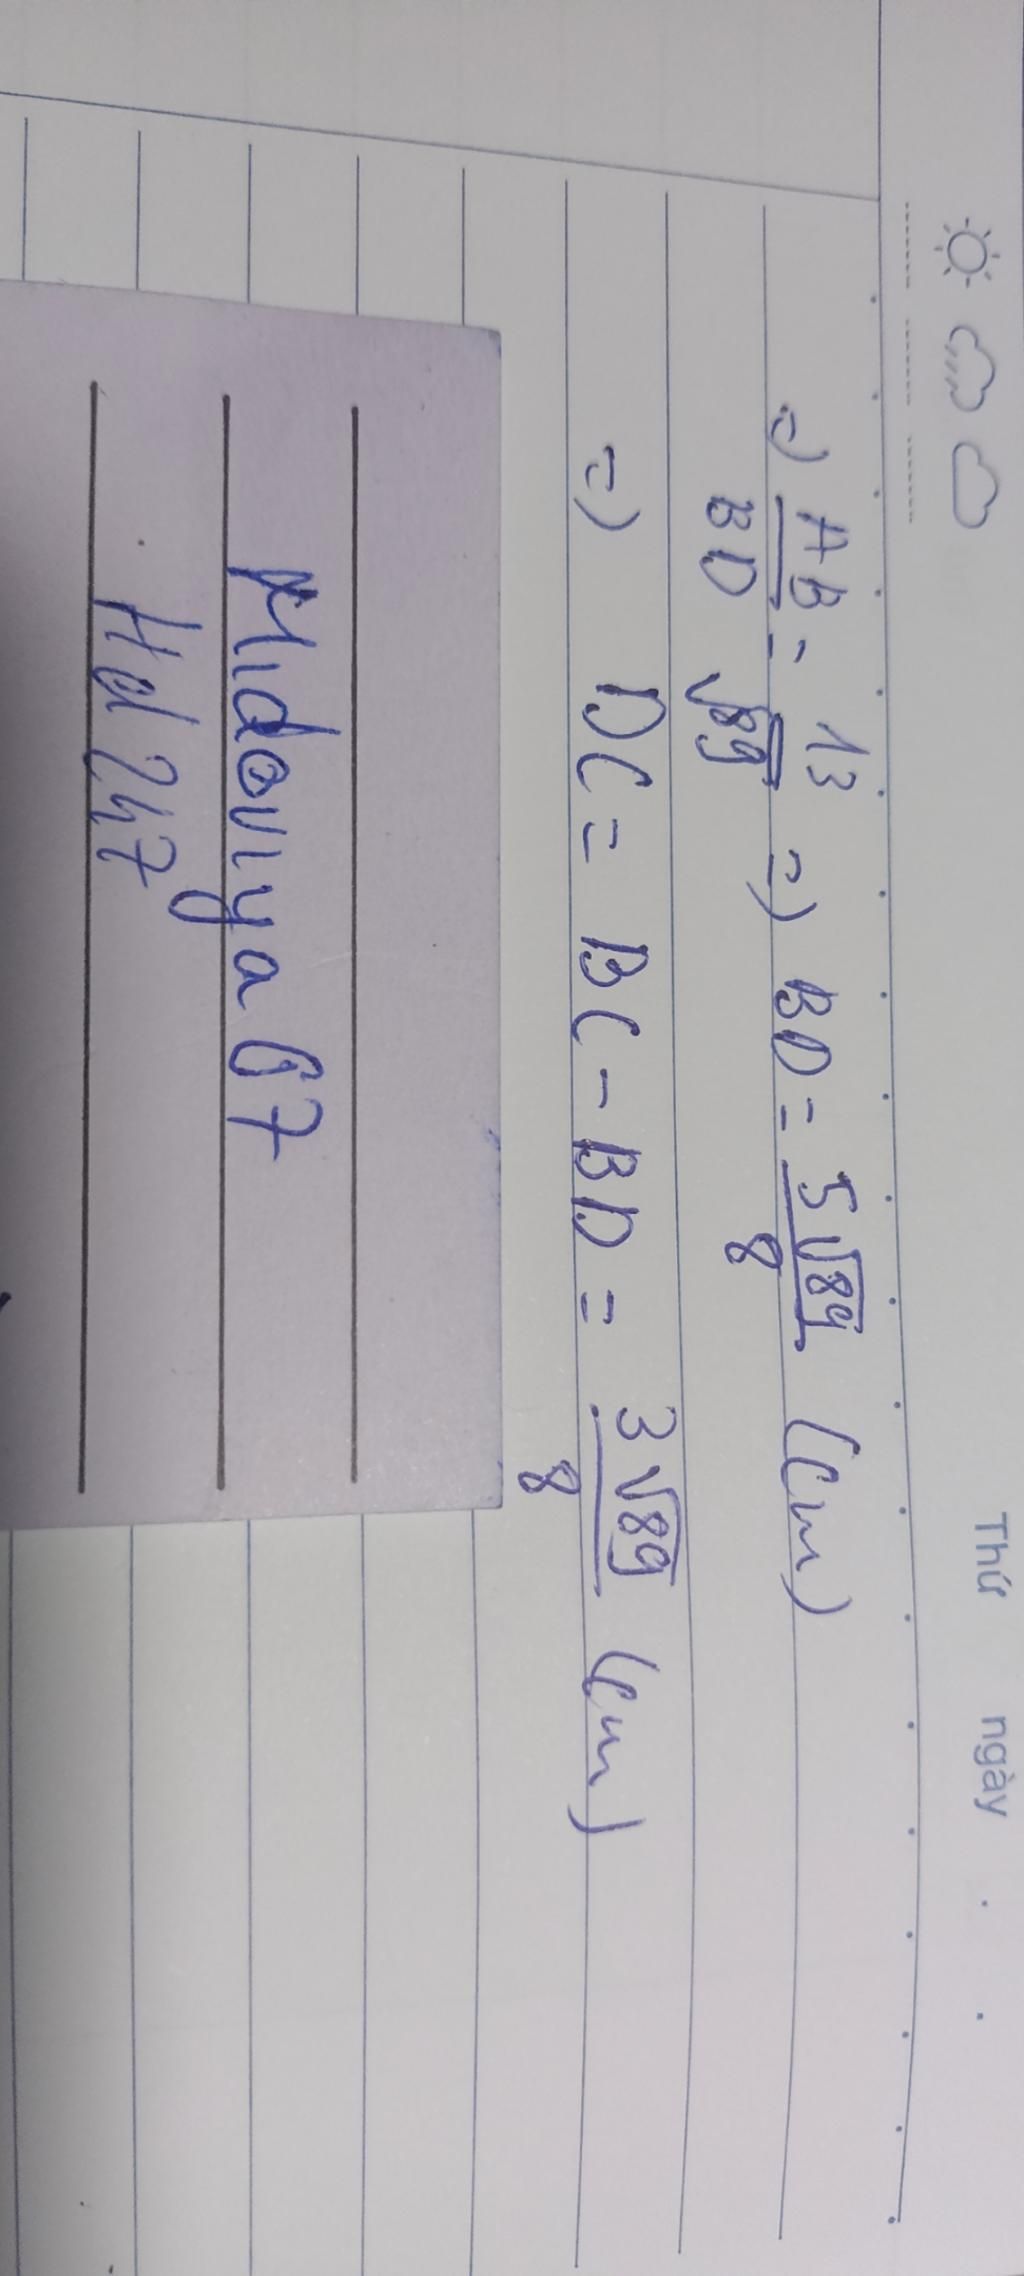 Thứ ngày
=) AB/BD = 13/√89 =) BD = 5√89/8 (cm)
=) DC = BC - BD = 3√89/8 (cm)
Midoviya67
Hd247